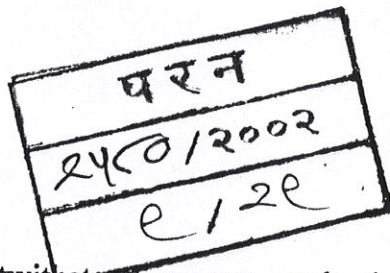 परन
२५८०/२००२
९/२९